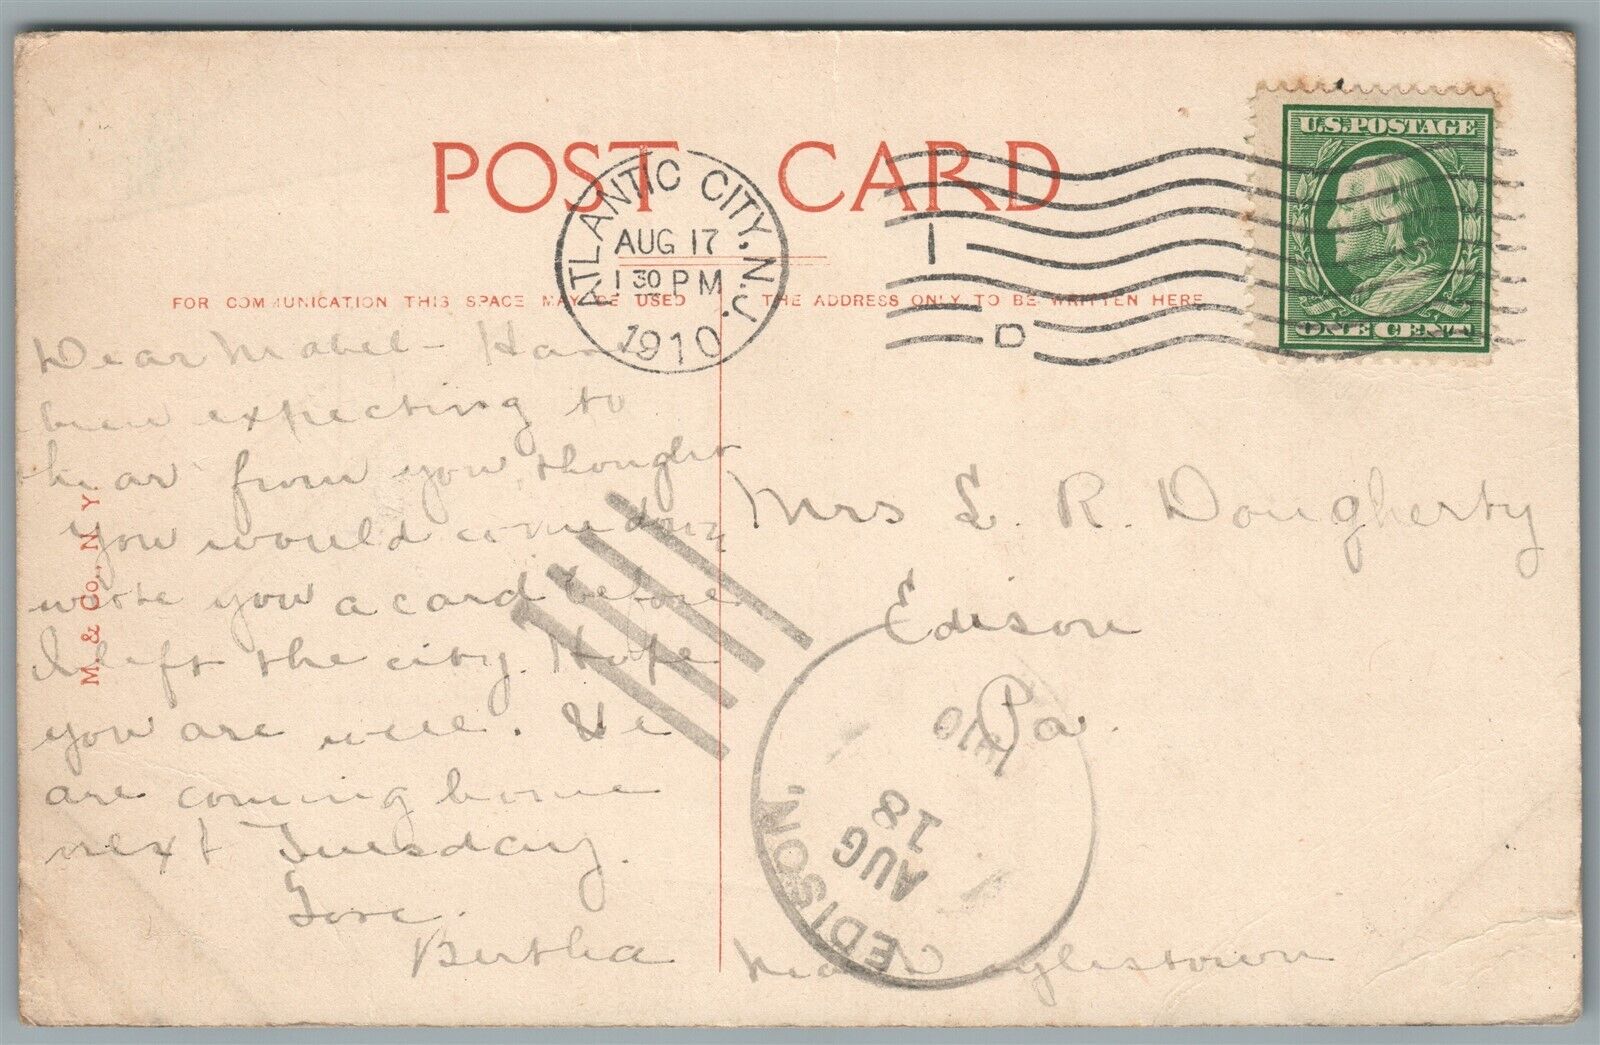 POST CARD
U.S. POSTAGE
ONE CENT
ATLANTIC CITY, N.J.
AUG 17
1 30 PM
1910
1
D
FOR COMMUNICATION THIS SPACE MAY BE USED
THE ADDRESS ONLY TO BE WRITTEN HERE
Dear Mabel - Have
been expecting to
hear from you, thought
you would come down
wrote you a card before
I left the city. Hope
you are well. We
are coming home
next Tuesday.
Love.
Bertha
M. & Co., N. Y
Mrs L. R. Dougherty
Edison
Pa.
Near Doylestown
EDISON,
AUG
18
1910